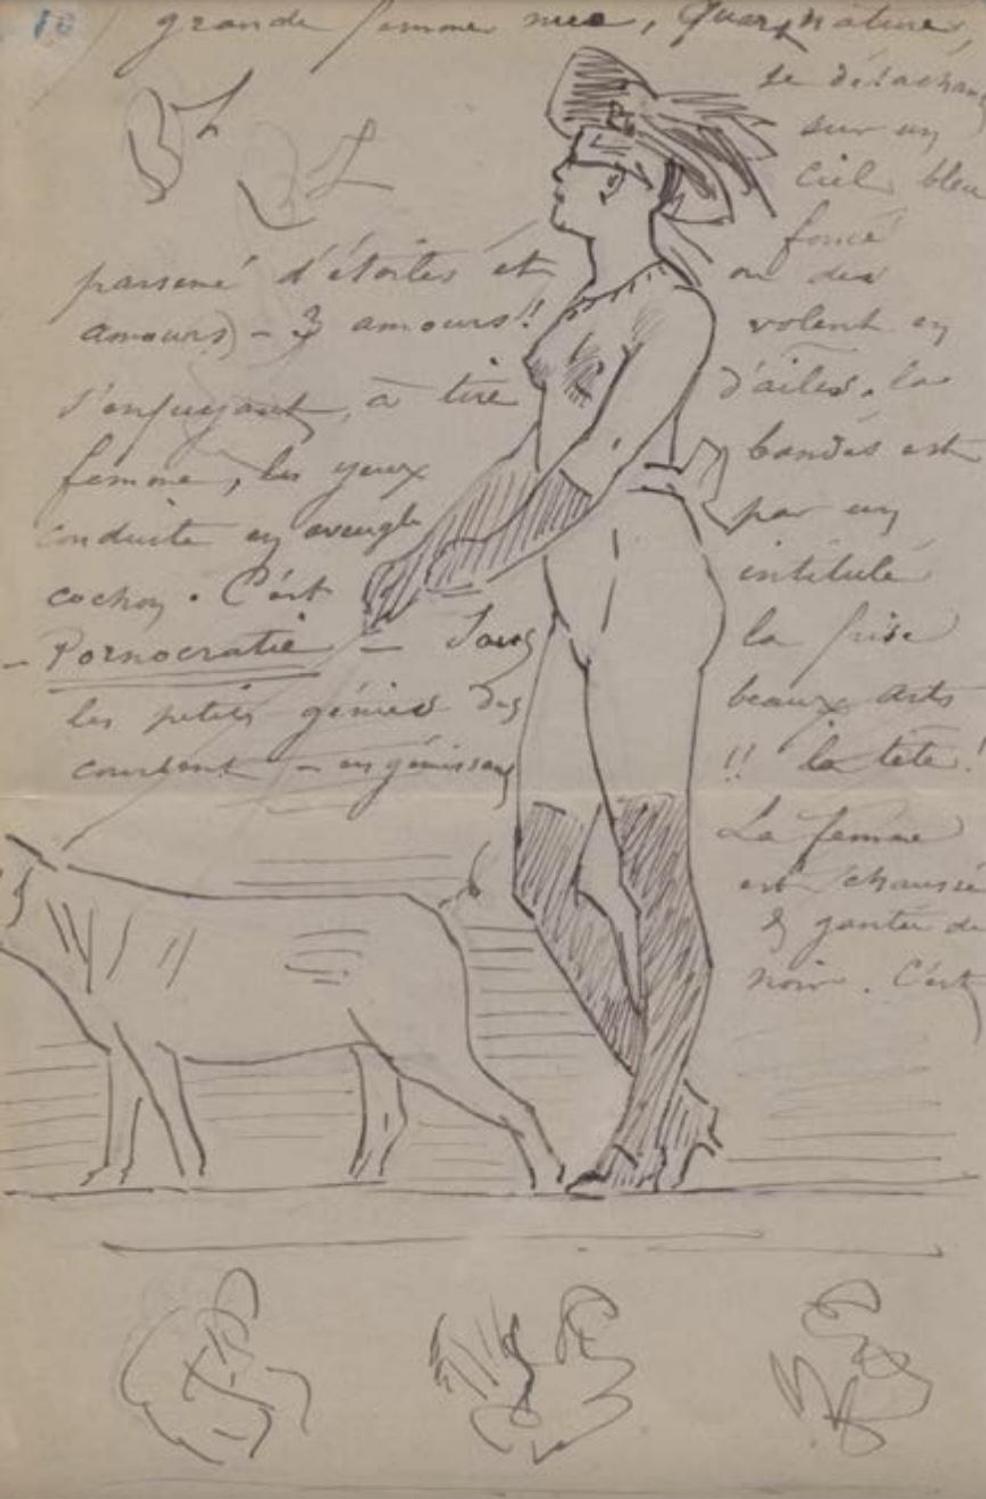 10
grande femme nue, quart nature,
se détachant
sur un
ciel bleu
foncé
parsemé d'étoiles et où des
amours) - 3 amours!! volent en
s'enfuyant, à tire d'ailes. la
femme, les yeux bandés est
conduite en aveugle par un
cochon. C'est intitulé
- Pornocratie - Sous la frise
les petits génies des beaux arts
courbent - en gémissant !! la tête!
La femme
est chaussée
& gantée de
noir. C'est